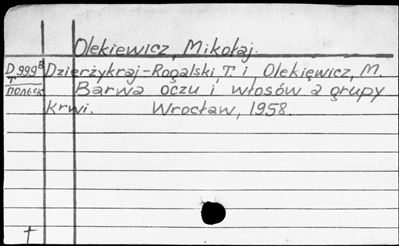 Olekiewicz, Mikołaj.
D 999⁸ Dzierżykraj-Rogalski, T. i Olekiewicz, M.
T
польск Barwa oczu i włosów a grupy
krwi. Wrocław, 1958.